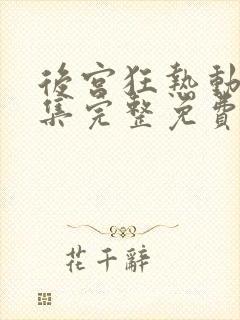 後宮狂熱動
集完整免費
花千辭